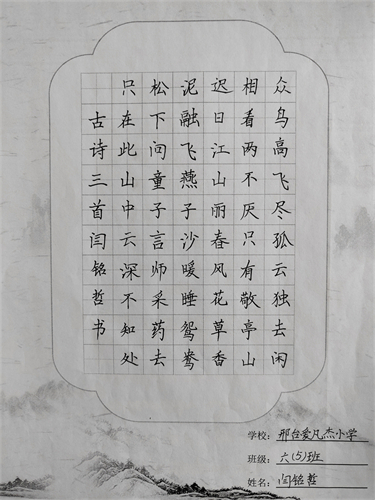 众鸟高飞尽孤云独去闲
相看两不厌只有敬亭山
迟日江山丽春风花草香
泥融飞燕子沙暖睡鸳鸯
松下问童子言师采药去
只在此山中云深不知处
古诗三首闫铭哲书
学校：邢台爱凡杰小学
班级：六(5)班
姓名：闫铭哲